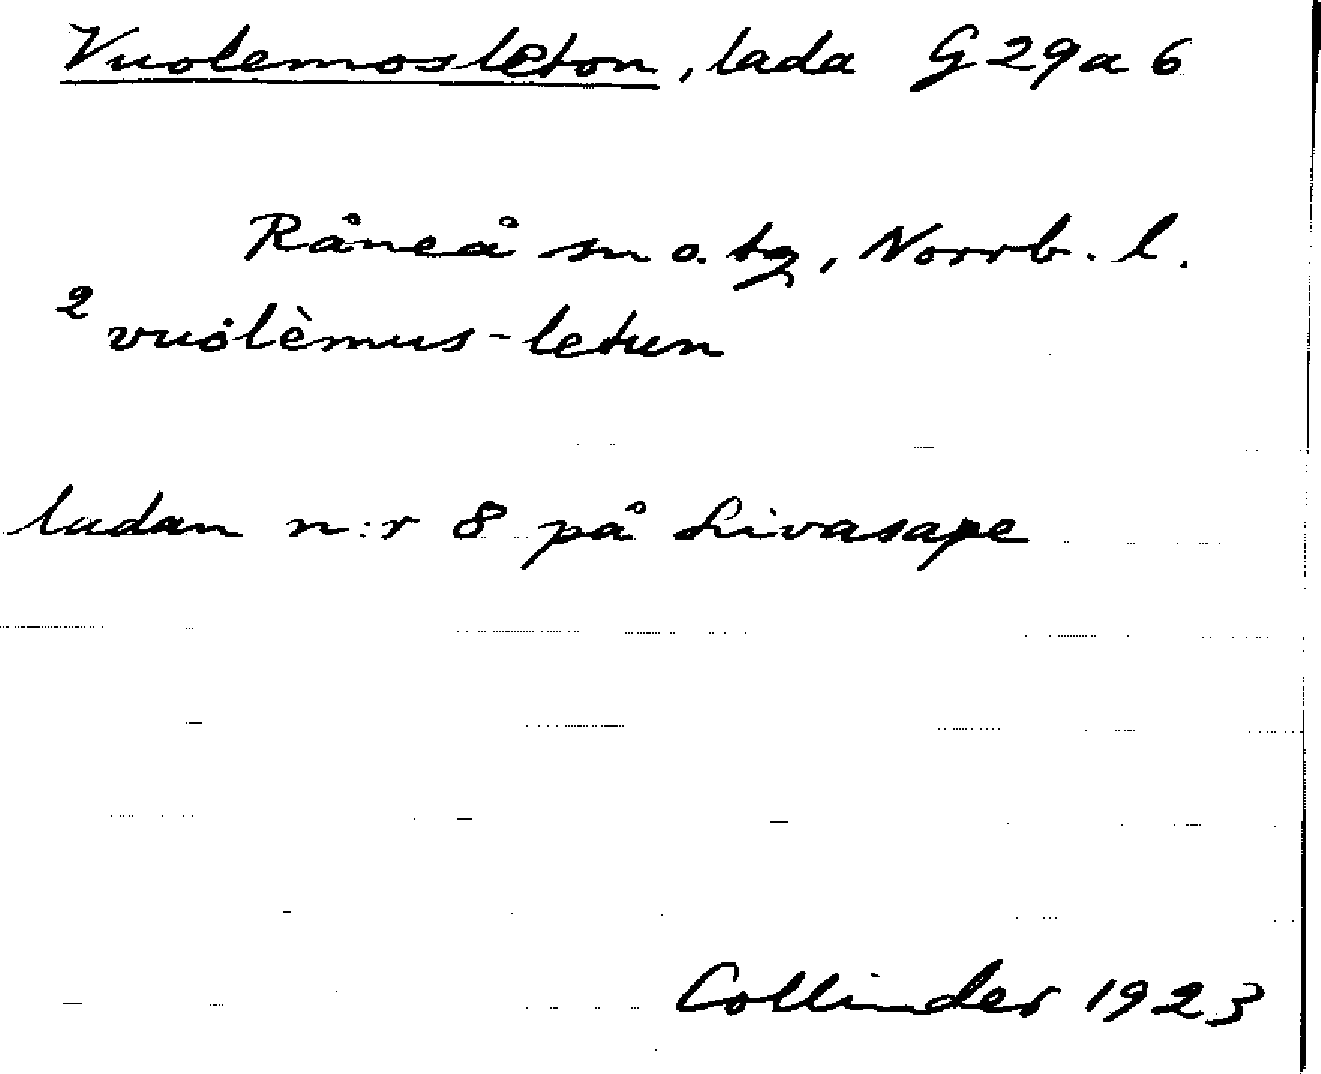 Vuolemosleton, lada G 29 a 6
Råneå sn o. tg, Norrb. l.
² vuölèmus-letun
ladan n:r 8 på Livasape
Collinder 1923